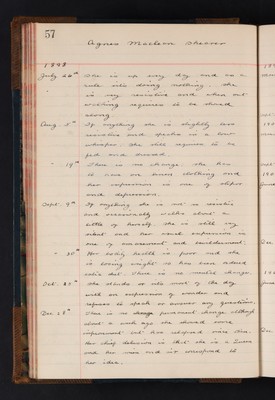 57
Agnes Maclean Shearer
1898
July 26th She is up every day and as a
rule sits doing nothing. She
is very resistive and when out
walking requires to be shoved
along
Aug. 5th If anything she is slightly less
resistive and speaks in a low
whisper. She still requires to be
fed and dressed.
" 19th There is no change. She has
to wear one piece clothing and
her expression is one of stupor
and depression.
Sept. 9th If anything she is not so resistive
and occasionally walks about a
little of herself. She is still very
silent and her usual expression is
one of amazement and bewilderment.
" 30th Her bodily health is poor and she
is losing weight so has been ordered
extra diet. There is no mental change.
Oct. 25th She stands or sits most of the day
with an expression of wonder and
refuses to speak or answer any questions.
Dec. 28th There is no change permanent change although
about a week ago she showed some
improvement but has relapsed since then.
Her chief delusion is that she is a Queen
and has now and is accustomed to
her idea.